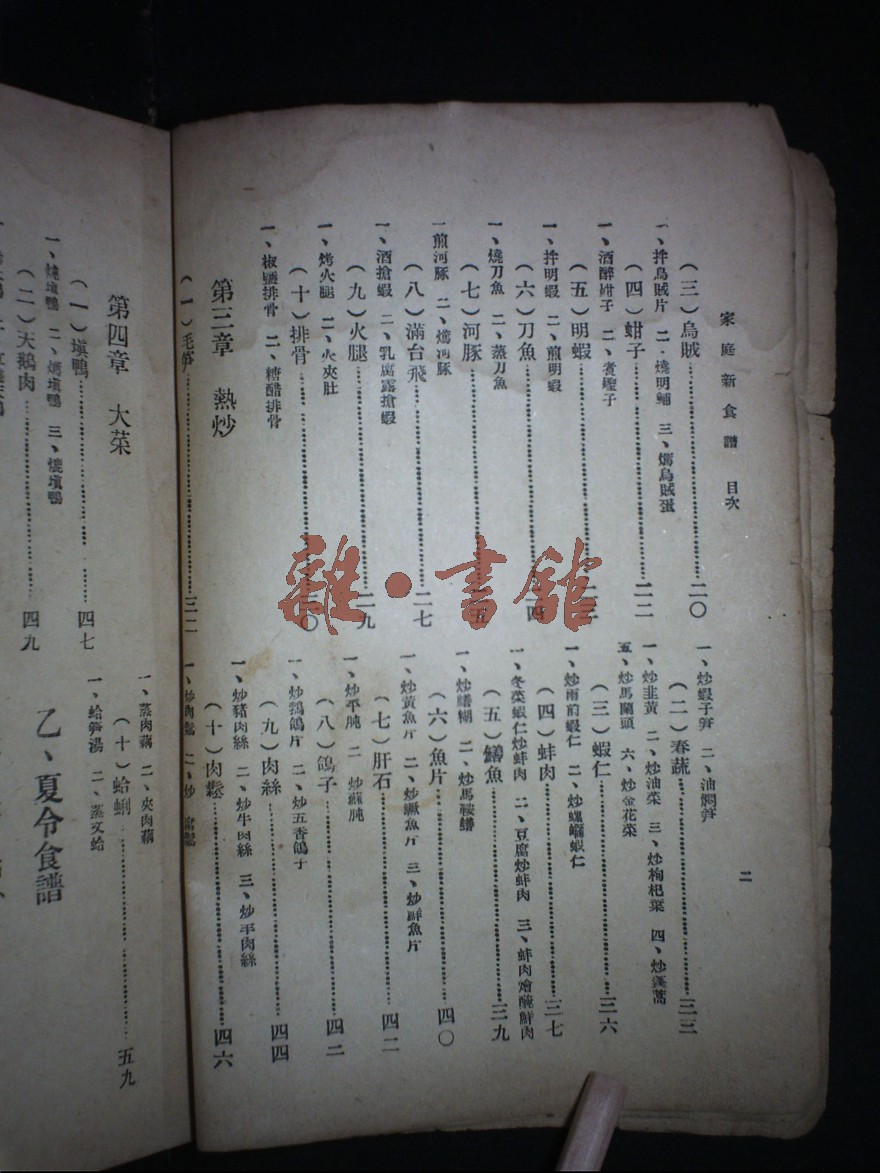 家庭新食譜 目次
二
（三）烏賊……二〇
一、拌烏賊片 二、燒明脯 三、燻烏賊蛋
（四）蚶子……二二
一、酒醉蚶子 二、煮蟶子
（五）明蝦……二三
一、拌明蝦 二、煎明蝦
（六）刀魚……二四
一、燒刀魚 二、蒸刀魚
（七）河豚……二五
一煎河豚 二、燻河豚
（八）滿台飛……二七
一、酒搶蝦 二、乳腐露搶蝦
（九）火腿……二九
一、烤火腿 二、火夾肚
（十）排骨……三〇
一、椒鹽排骨 二、糖醋排骨
第三章 熱炒
（一）毛笋……三二
一、炒蝦子笋 二、油燜笋
（二）春蔬……三三
一、炒韭黃 二、炒油菜 三、炒枸杞葉 四、炒蓬蒿
五、炒馬蘭頭 六、炒金花菜
（三）蝦仁……三六
一、炒雨前蝦仁 二、炒螺螄蝦仁
（四）蚌肉……三七
一、冬菜蝦仁炒蚌肉 二、豆腐炒蚌肉 三、蚌肉燴醃鮮肉
（五）鱔魚……三九
一、炒鱔糊 二、炒馬鞍鱔
（六）魚片……四〇
一、炒黃魚片 二、炒鱖魚片 三、炒鮮魚片
（七）肝石……四二
一、炒平肫 二、炒蘇肫
（八）鴿子……四二
一、炒鵓鴿片 二、炒五香鴿子
（九）肉絲……四四
一、炒豬肉絲 二、炒牛肉絲 三、炒羊肉絲
（十）肉鬆……四六
一、炒肉鬆 二、炒
第四章 大菜
（一）塡鴨……四七
一、燒塡鴨 二、燻塡鴨 三、
（二）天鵝肉……四九
一、蒸肉藕 二、夾肉藕
（十）蛤蜊……五九
一、蛤笋湯 二、蒸文蛤
乙、夏令食譜
雜·書館